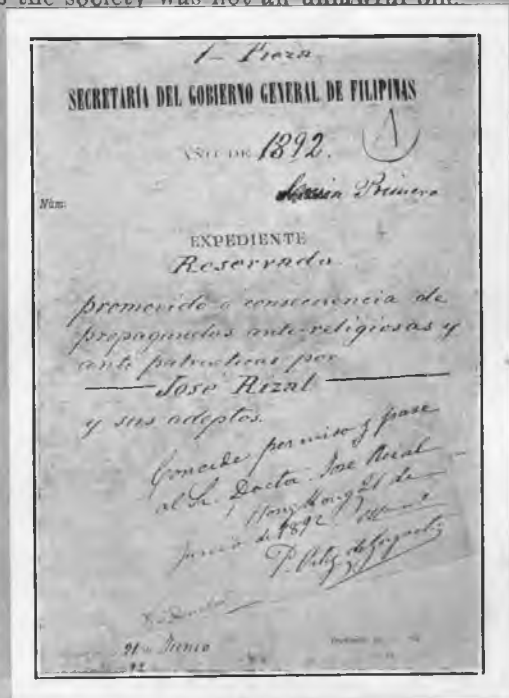 the society was not an unlawful one.
1ª Pieza
SECRETARÍA DEL GOBIERNO GENERAL DE FILIPINAS
AÑO DE 1892.
1
Primero
Núm.
EXPEDIENTE
Reservado
promovido a consecuencia de
propagandas anti-religiosas y
anti patrioticas por
Jose Rizal
y sus adeptos.
Concede permiso y pase
al Sr. Doctor Jose Rizal
Hong Kong 21 de
Junio de 1892.
21 Junio
92